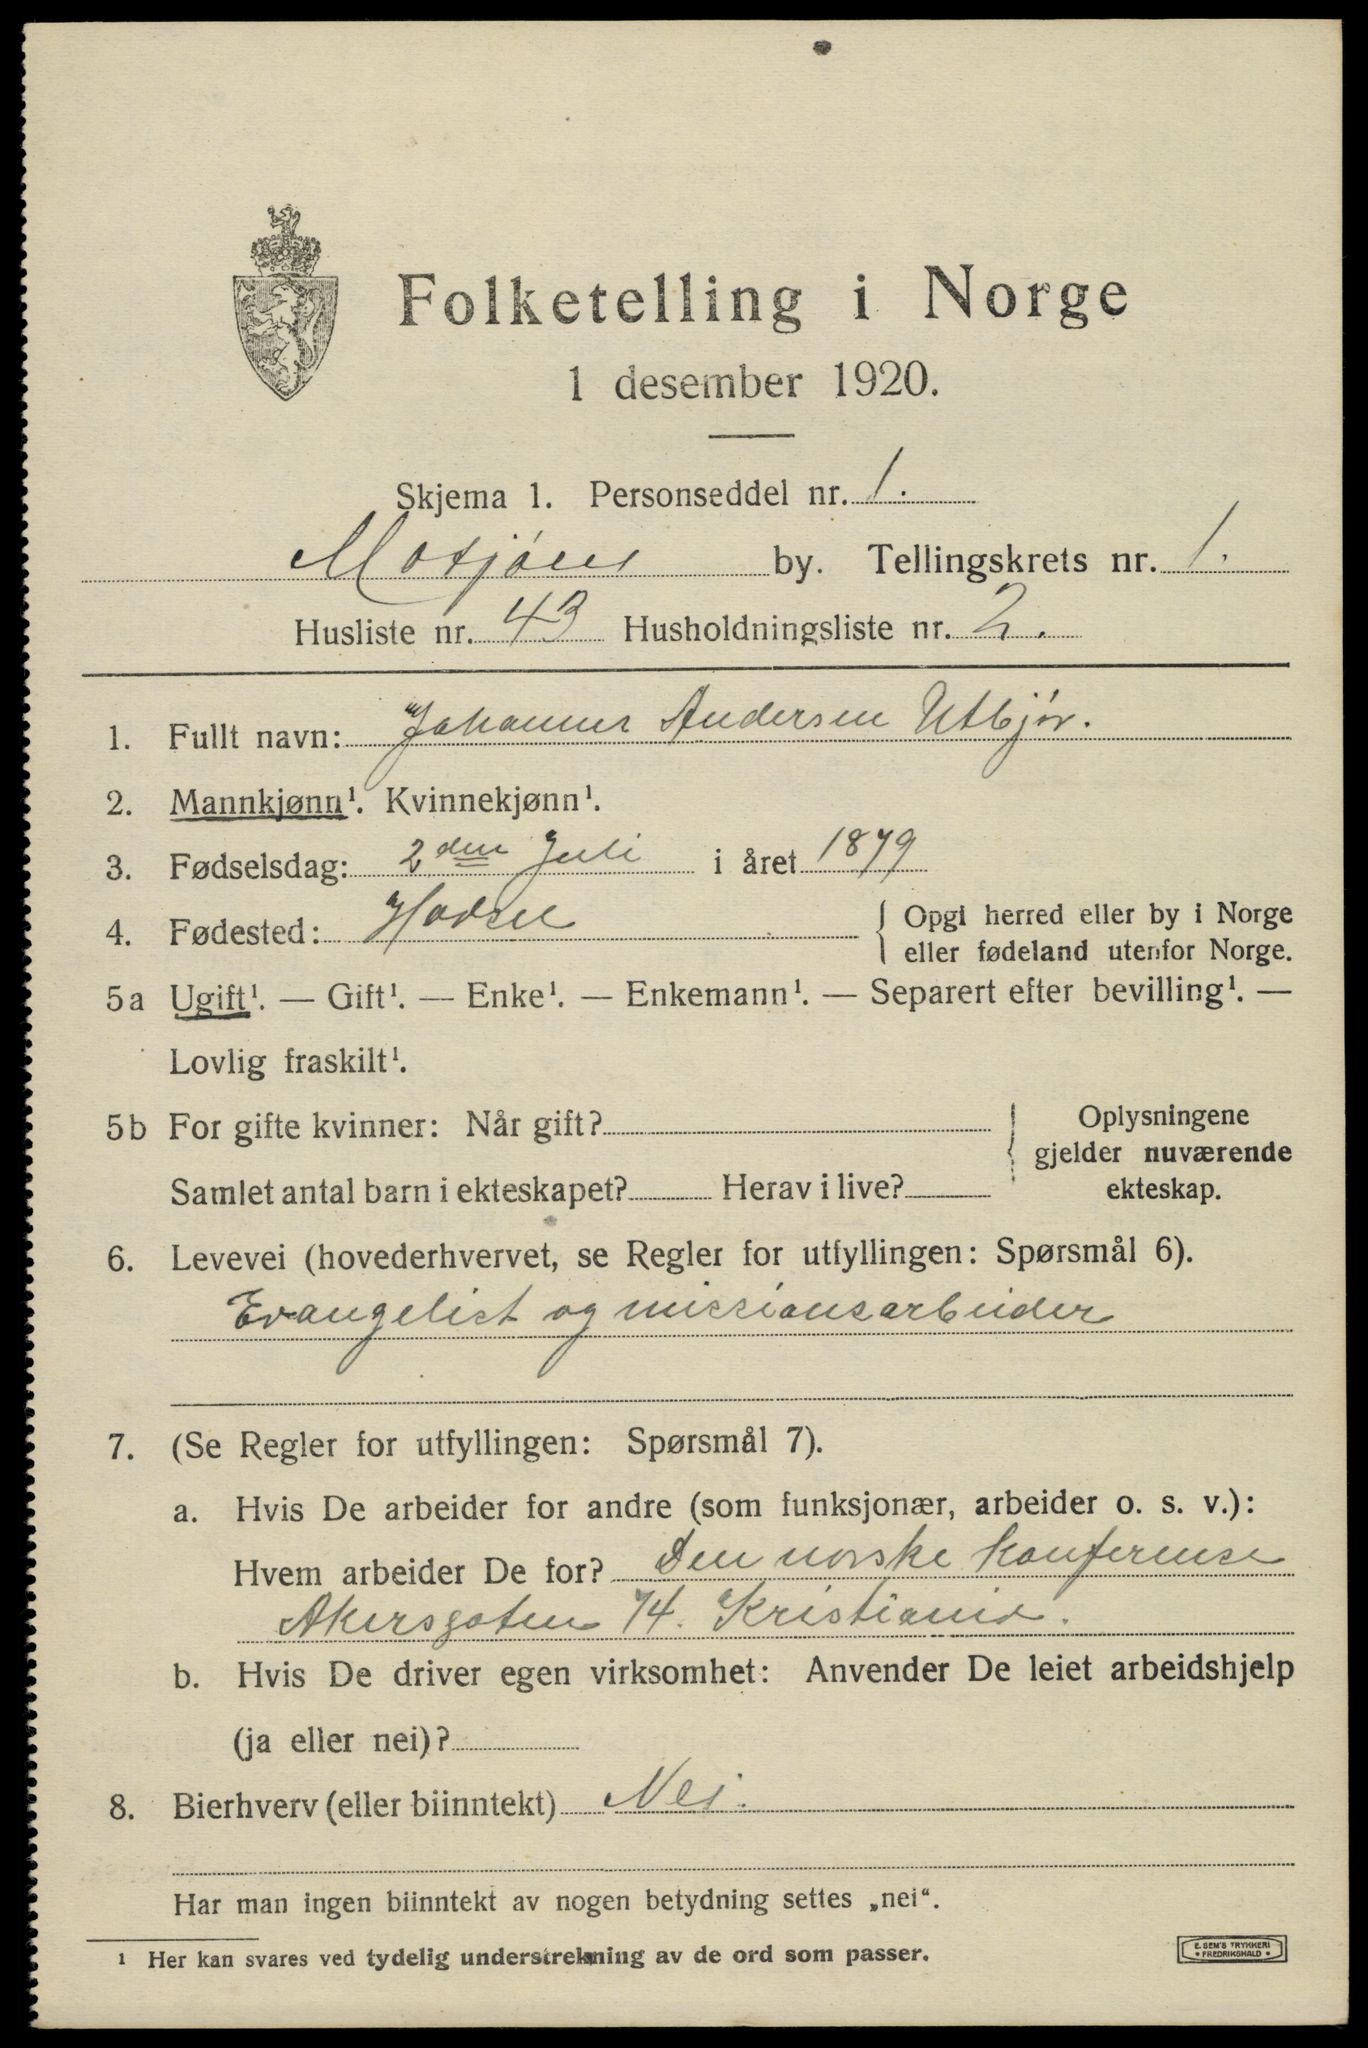 Folketelling i Norge
1 desember 1920.
Skjema 1. Personseddel nr. 1.
Mosjøen by. Tellingskrets nr. 1.
Husliste nr. 43 Husholdningsliste nr. 2.
1. Fullt navn: Johannes Andersen Utbjør.
2. Mannkjønn¹. Kvinnekjønn¹.
3. Fødselsdag: 2den Juli i året 1879
4. Fødested: Hadsel { Opgi herred eller by i Norge
eller fødeland utenfor Norge.
5a Ugift¹. — Gift¹. — Enke¹. — Enkemann¹. — Separert efter bevilling¹. —
Lovlig fraskilt¹.
5b For gifte kvinner: Når gift? } Oplysningene
gjelder nuværende
Samlet antal barn i ekteskapet? Herav i live? ekteskap.
6. Levevei (hovederhvervet, se Regler for utfyllingen: Spørsmål 6).
Evangelist og missionsarbeider
7. (Se Regler for utfyllingen: Spørsmål 7).
a. Hvis De arbeider for andre (som funksjonær, arbeider o. s. v.):
Hvem arbeider De for? Den norske konferense
Akersgaten 74. Kristiania.
b. Hvis De driver egen virksomhet: Anvender De leiet arbeidshjelp
(ja eller nei)?
8. Bierhverv (eller biinntekt) Nei.
Har man ingen biinntekt av nogen betydning settes „nei“.
¹ Her kan svares ved tydelig understrekning av de ord som passer.
E. SEM'S TRYKKERI
• FREDRIKSHALD •